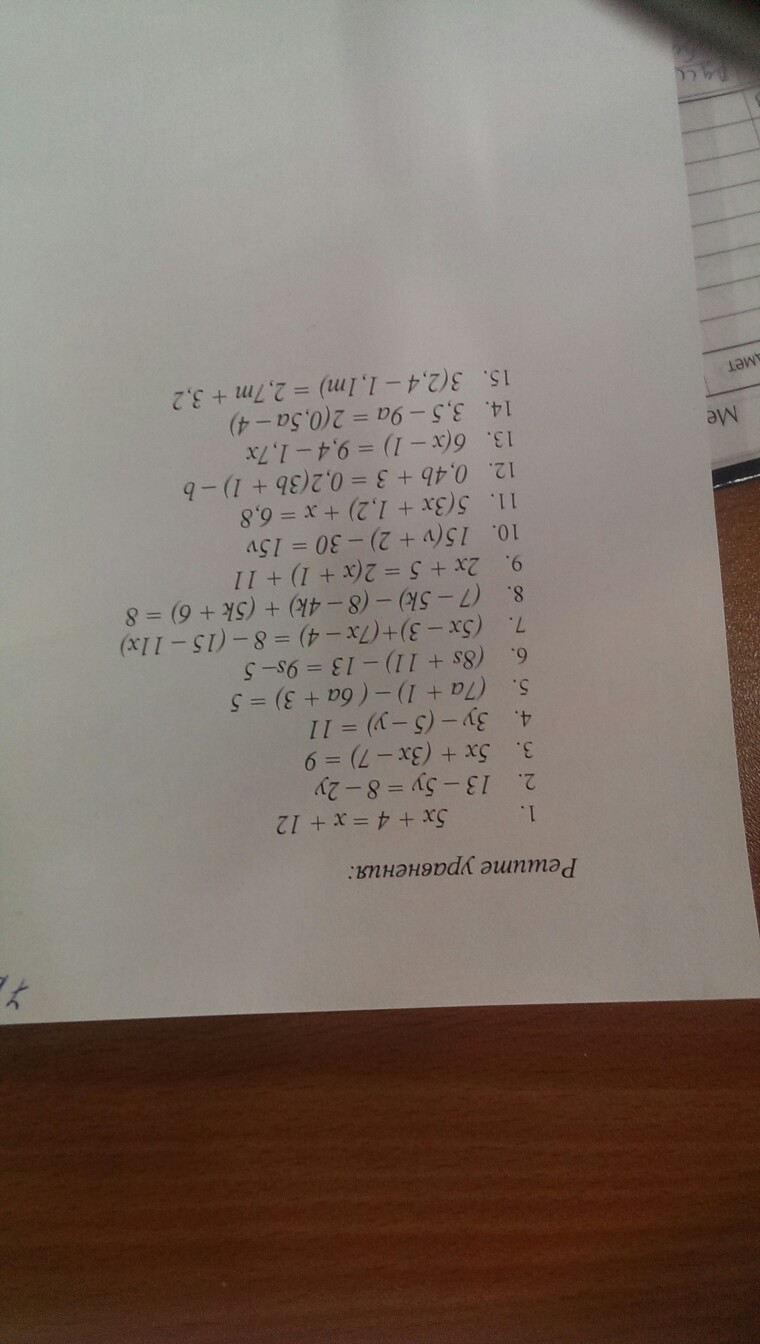 Решите уравнения:
1. 5x + 4 = x + 12
2. 13 − 5y = 8 − 2y
3. 5x + (3x − 7) = 9
4. 3y − (5 − y) = 11
5. (7a + 1) − ( 6a + 3) = 5
6. (8s + 11) − 13 = 9s− 5
7. (5x − 3)+(7x − 4) = 8 − (15 − 11x)
8. (7 − 5k) − (8 − 4k) + (5k + 6) = 8
9. 2x + 5 = 2(x + 1) + 11
10. 15(v + 2) − 30 = 15v
11. 5(3x + 1,2) + x = 6,8
12. 0,4b + 3 = 0,2(3b + 1) − b
13. 6(x − 1) = 9,4 − 1,7x
14. 3,5 − 9a = 2(0,5a − 4)
15. 3(2,4 − 1,1m) = 2,7m + 3,2
Ме